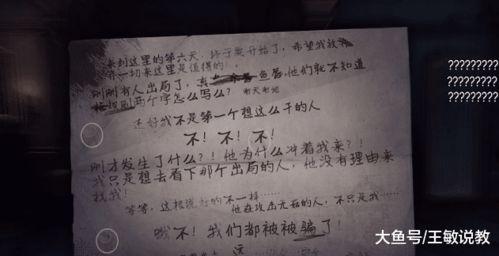 来到这里的第六天，终于要开始了，希望我放
弃一切来这里是值得的！
刚刚有人出局了，真 鱼唇，他们就不知道
规则两个字怎么写么？
还好我不是第一个想这么干的人
不！不！不！
刚才发生了什么？！他为什么冲着我来？！
我只是想去看下那个出局的人，他没有理由来
找我！
等等，这根 的不一样……
他在攻击 的人，不只是我……
哦不！我们都被被骗了！
这
?????????
?????????
?????????
大鱼号/王敏说教